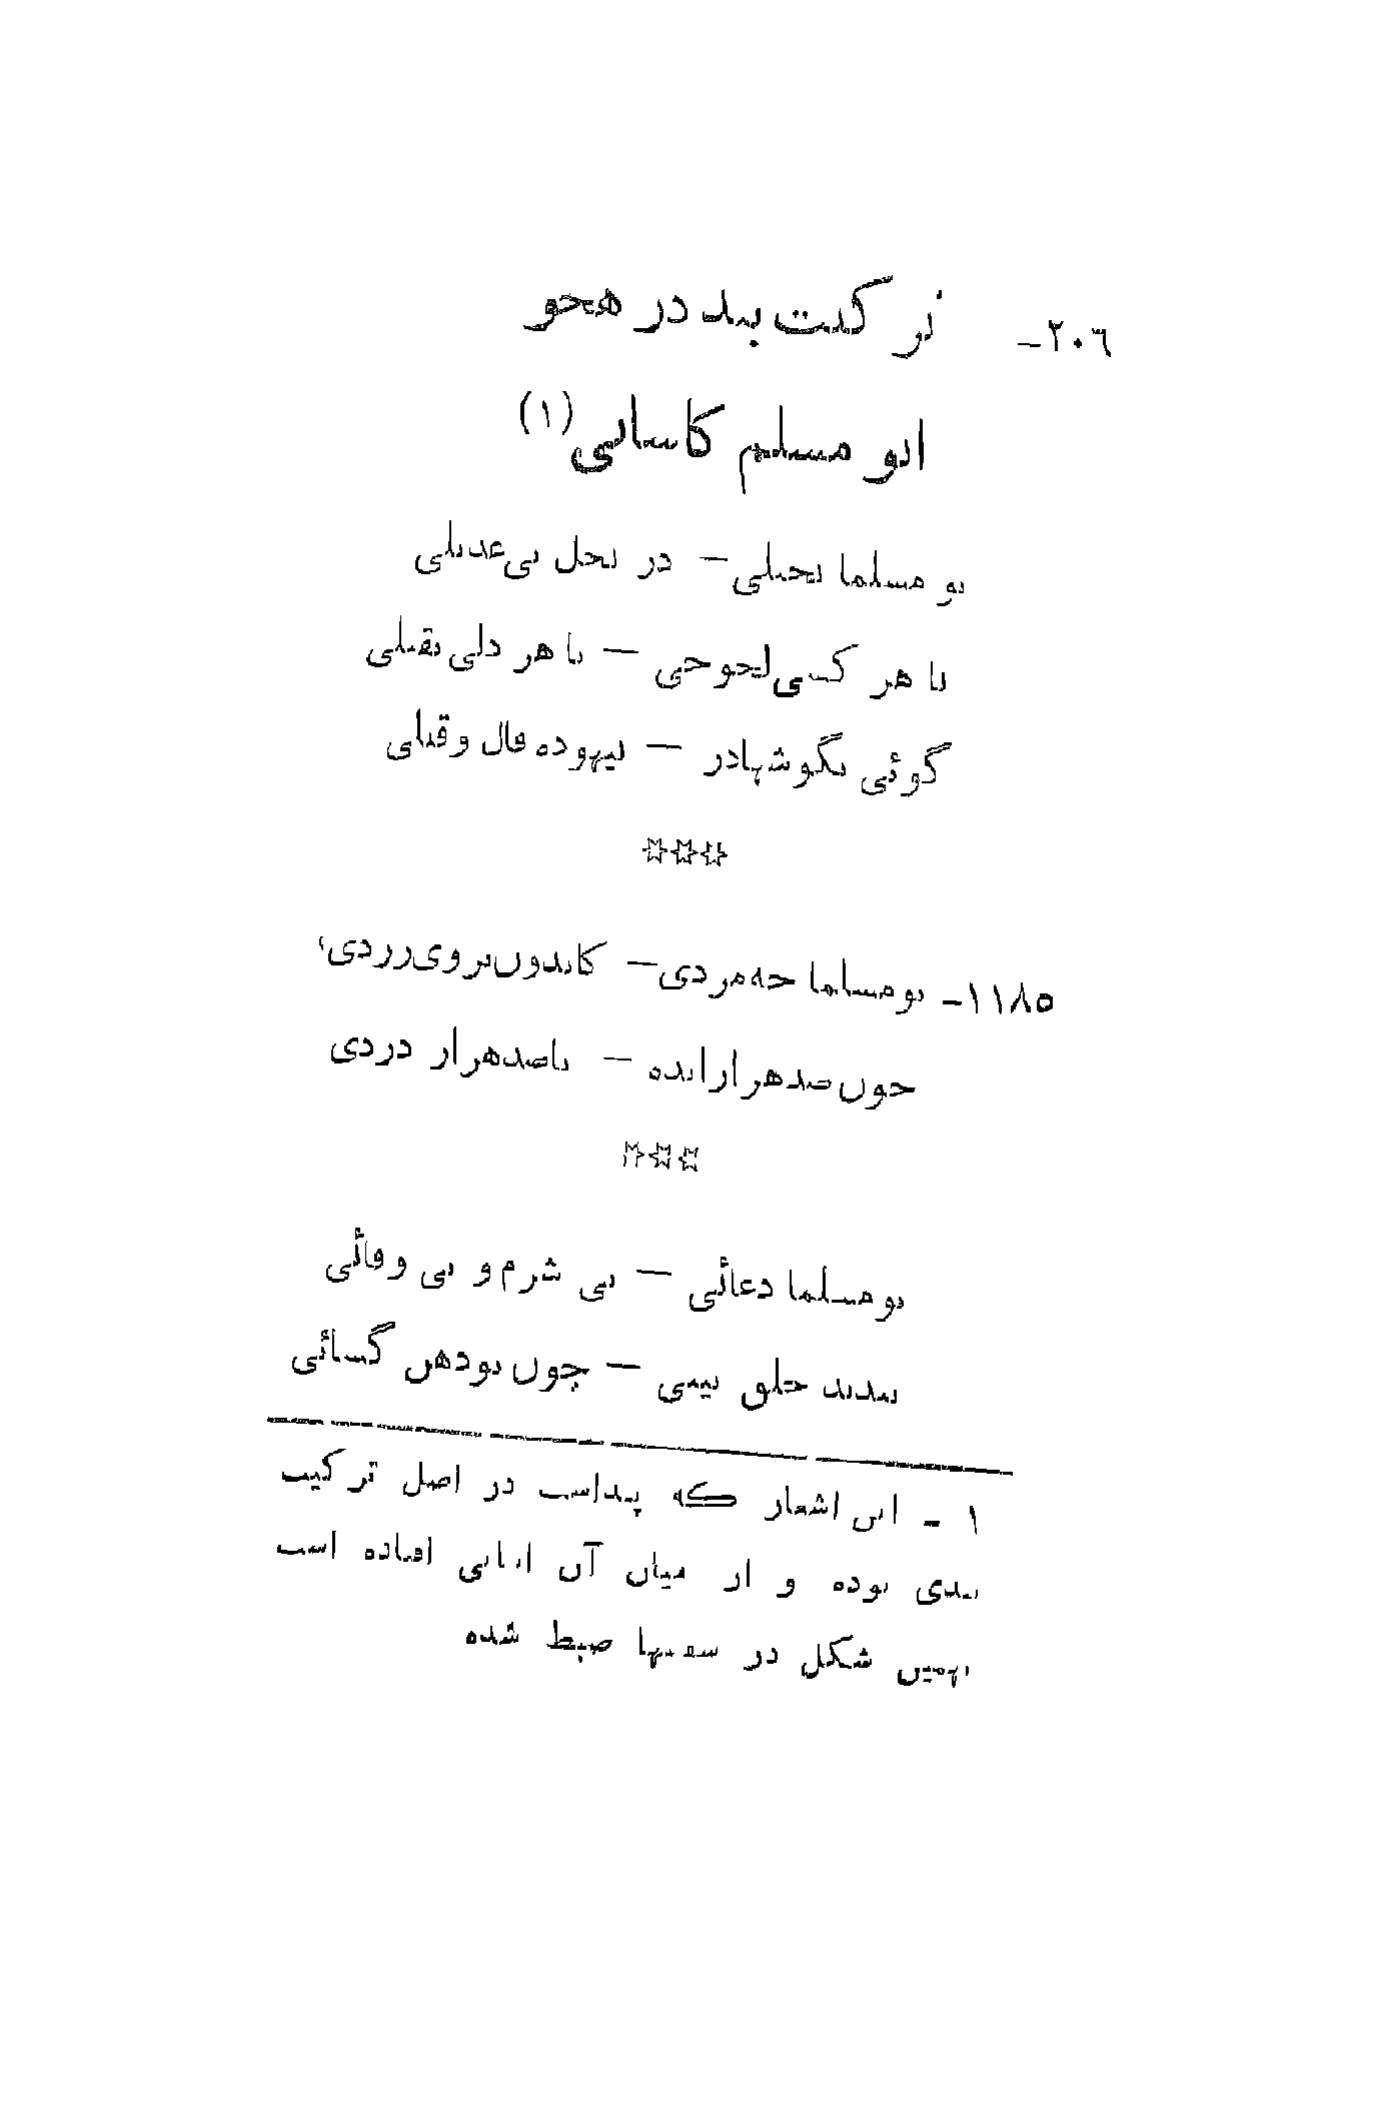 ۲۰۶- ترکیب بند در هجو
ابو مسلم کاسانی (۱)
بو مسلما بخیلی – در بخل بی‌عدیلی
با هر کسی لجوجی – با هر دلی ثقیلی
گوئی بگوشهادر – بیهوده قال و قیلی
***
۱۱۸۵- بومسلما چه مردی – کاندون بروی زردی
چون صدهزار انده – باصدهزار دردی
***
بومسلما دغائی – بی شرم و بی وفائی
ببندند خلق بینی – چون تودهن گشائی
۱ - این اشعار که پیداست در اصل ترکیب
بندی بوده و از میان آن ابیاتی افتاده است
بهمین شکل در سفینها ضبط شده